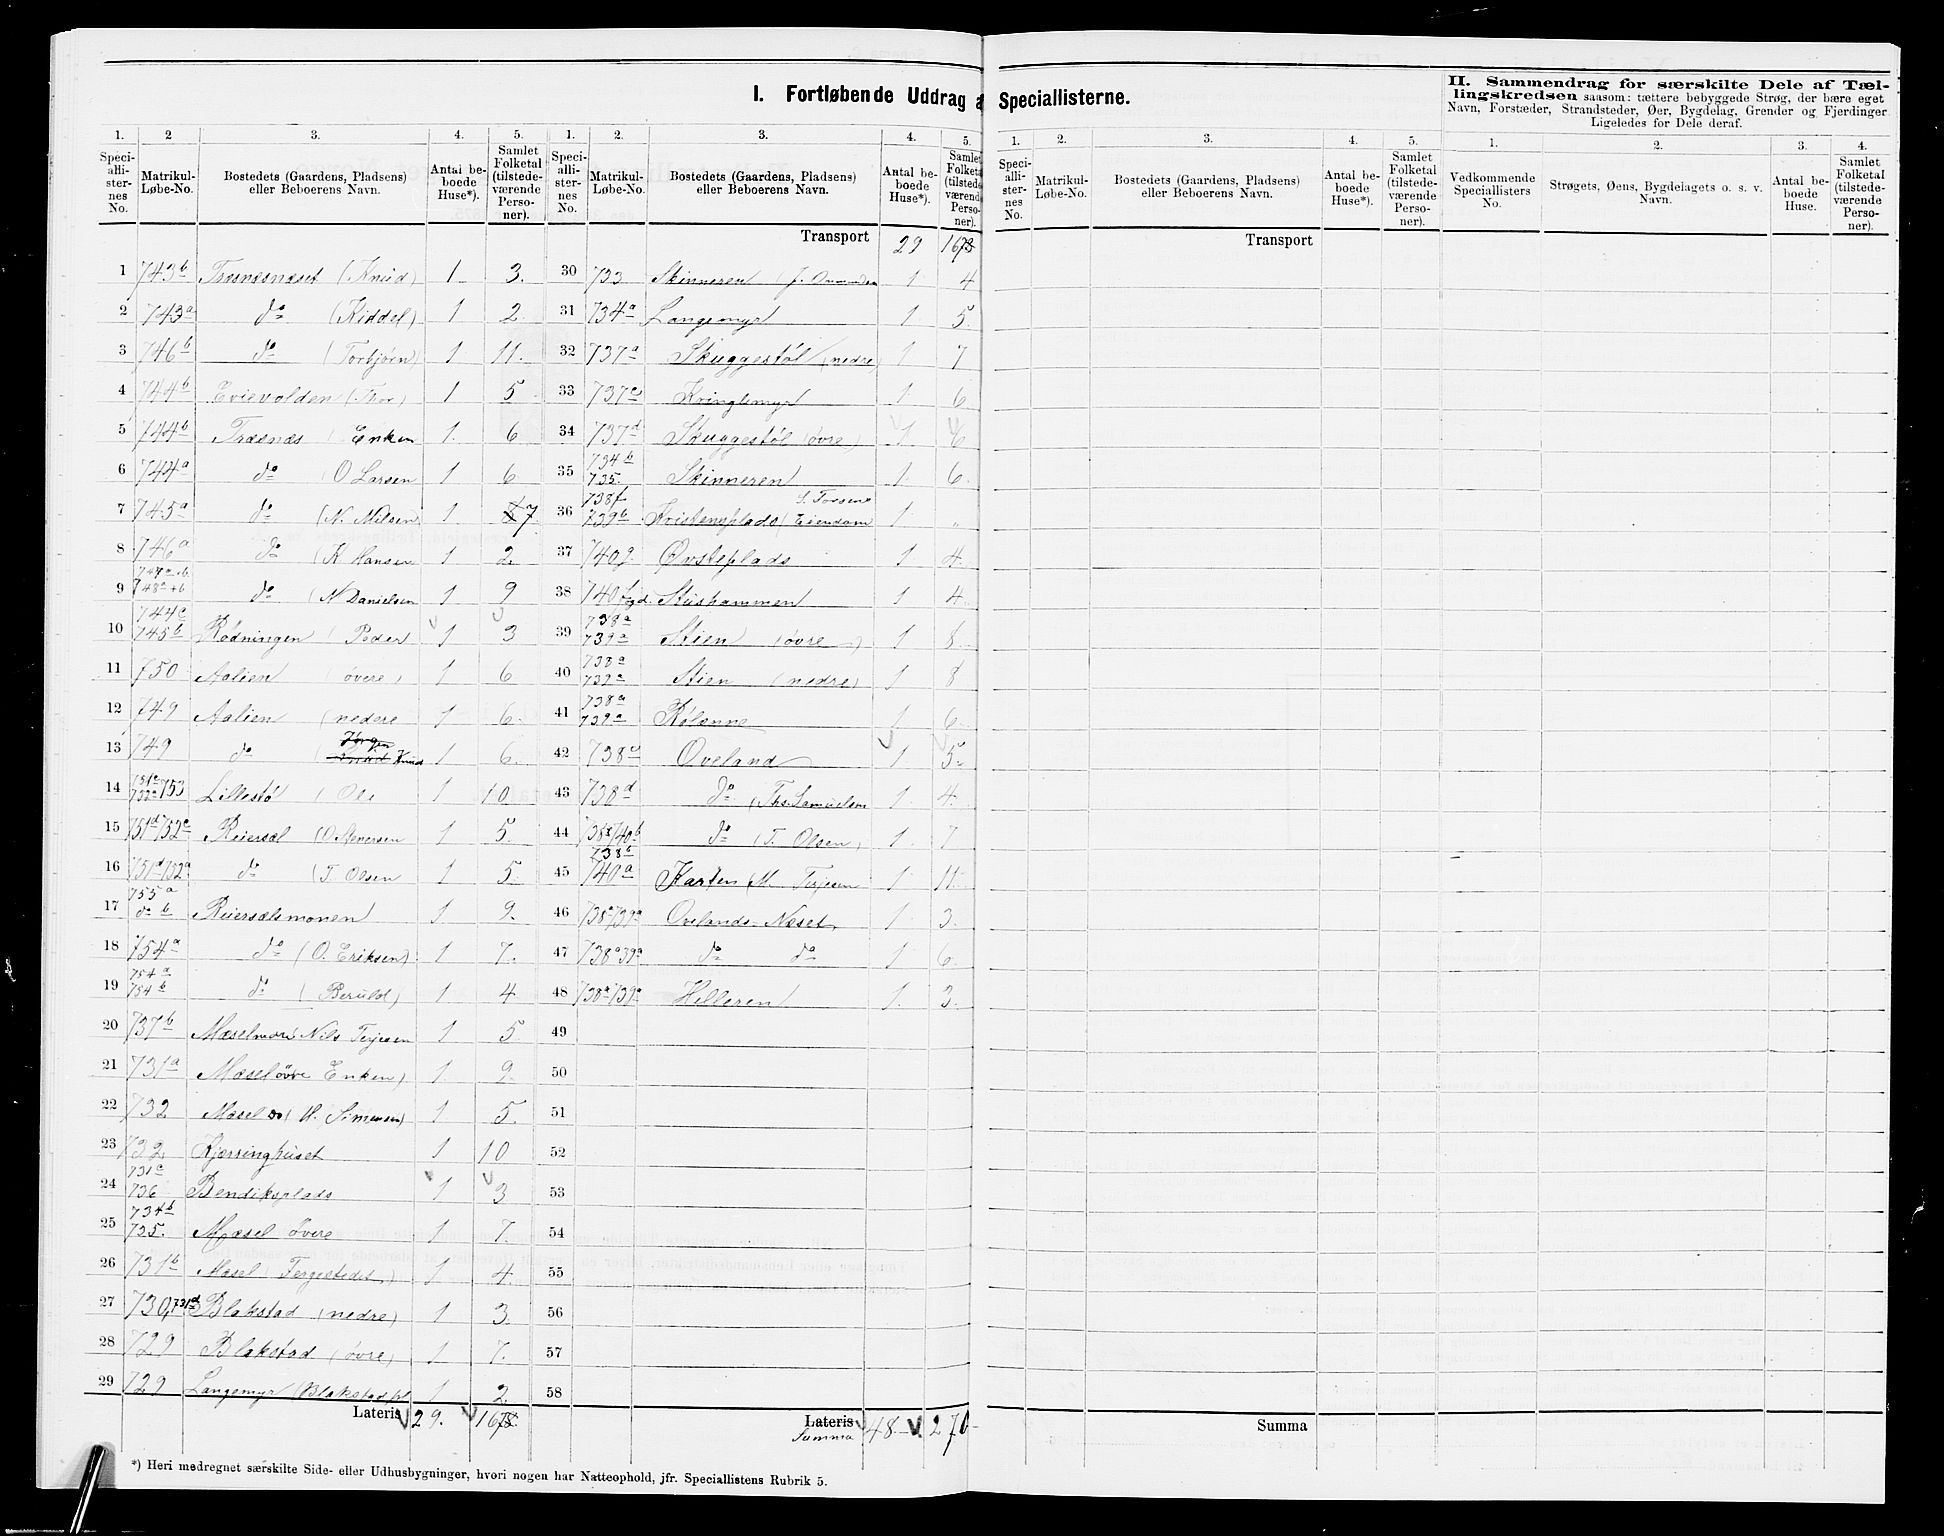 I. Fortløbende Uddrag a Speciallisterne.
II. Sammendrag for særskilte Dele af Tæl-
lingskredsen saasom: tættere bebyggede Strøg, der bære eget
Navn, Forstæder, Strandsteder, Øer, Bygdelag, Grender og Fjerdinger
Ligeledes for Dele deraf.
1. 2 3. 4. 5. 1. 2. 3. 4. 5.
Speciallisternes No. Matrikul-Løbe-No. Bostedets (Gaardens, Pladsens) eller Beboerens Navn. Antal beboede Huse*). Samlet Folketal (tilstedeværende Personer).
Speciallisternes No. Matrikul-Løbe-No. Bostedets (Gaardens, Pladsens) eller Beboerens Navn. Antal beboede Huse*). Samlet Folketal (tilstedeværende Personer).
1. 2. 3. 4. 5. 1. 2. 3. 4.
Speciallisternes No. Matrikul-Løbe-No. Bostedets (Gaardens, Pladsens) eller Beboerens Navn. Antal beboede Huse*). Samlet Folketal (tilstedeværende Personer).
Vedkommende Speciallisters No. Strøgets, Øens, Bygdelagets o. s. v. Navn. Antal beboede Huse. Samlet Folketal (tilstedeværende Personer).
1 743b Træsnæsnæset (Knud) 1 3.
2 743a do (Kiddel) 1 2.
3 746b do (Torbjørn) 1 11.
4 744b Evievolden (Thor) 1 5
5 744b Træsnæs (Enken 1. 6
6 744a do (O Larsen 1 6
7 745a do (N. Nilsen 1. 7.
8 746a do (K Hansen 1 2.
9 747a+b 748a+b do (N Danielsen 1 9
10 744c 745b Rødningen (Peder 1 3
11 750 Aalien (øvere) 1 6
12 749 Aalien (nedere 1 6.
13 749 do (Knud 1 6.
14 753 Lillestø (Ole 1 10
15 751d 752c Reiersøl 1 5.
16 751d 752a do (T. Olsen 1 5.
17 755a do b Reiersølsmonen 1 9.
18 754a do (O. Eriksen) 1 7.
19 754a 754b do (Beruld) 1 4
20 737b Nils Terjesen 1 5
21 731a Mæsel øvre Enken) 1 9.
22 732 Mæsel do (H. Simonsen) 1 5.
23 732 Kjærringhuset 1 10
24 731c 736 Bendiksplads 1 3
25 734b 735. Mæsel øvre 1 7.
26 731b Mæsel (Tergestedet) 1 4.
27 730, 731d Blakstad (nedre) 1 3.
28 729 Blakstad (øvre) 1 7.
29 729 Langemyr (Blakstad pl 1 2.
Lateris 29. 167
Transport 29 167
30 733 Skinneren 1 4
31 734a Langemyr 1. 5.
32 737a Skuggestøl (nedre) 1 7
33 737c Kringlemyr 1. 6
34 737d Skuggestøl (øvre) 1. 6
35 734b 735. Skinneren 1. 6.
36 738f 739b Kristensplads (S. Torsens Eiendom 1. "
37 740g. Øvsteplads 1 4.
38 740 Stishammen 1 4.
39 738a 739a Stien (øvre) 1 8.
40 738a 739a Stien (nedre) 1 8
41 738a 739a 1 6.
42 738c Oveland 1 5.
43 738d do (Ths. Samuelsen 1. 4.
44 740b do (T. Olsen) 1. 7
45 738b 740a Karten (M. Terjesen 1. 11.
46 738a 739a Ovelands Næset 1 3.
47 738a 39a do do 1 6.
48 738a 739a Helleren 1. 3.
49
50
51
52
53
54
55
56
57
58
Lateris
Summa 48 270
Transport
Summa
*) Heri medregnet særskilte Side- eller Udhusbygninger, hvori nogen har Natteophold, jfr. Speciallistens Rubrik 5.